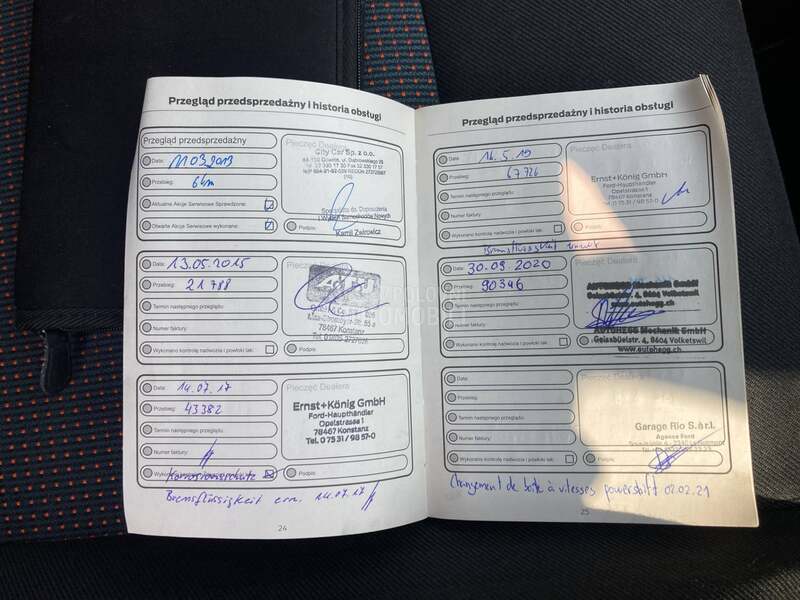 Przegląd przedsprzedażny i historia obsługi
Przegląd przedsprzedażny
Pieczęć Dealera
Data: 11.03.2013
City Car Sp. z o.o.
Przebieg: 6km
Aktualne Akcje Serwisowe Sprawdzone:
Otwarte Akcje Serwisowe wykonane:
Specjalista ds. Doposażenia
i Wydań Samochodów Nowych
Podpis:
Data: 13.05.2015
Pieczęć Dealera
Przebieg: 21 788
Termin następnego przeglądu:
Numer faktury:
78467 Konstanz
Wykonano kontrolę nadwozia i powłoki lak.
Podpis:
Data: 14.07.17
Pieczęć Dealera
Przebieg: 43382
Ernst+König GmbH
Ford-Haupthändler
Termin następnego przeglądu:
Opelstrasse 1
78467 Konstanz
Numer faktury:
Tel. 0 75 31 / 98 57-0
Wykonano
Korrosionsschutz
Podpis:
Bremsflüssigkeit ern. 14.07.17
24
Przegląd przedsprzedażny i historia obsługi
Data: 16.5.19
Pieczęć Dealera
Przebieg: 67726
Ernst+König GmbH
Ford-Haupthändler
Termin następnego przeglądu:
Opelstrasse 1
78467 Konstanz
Numer faktury:
Tel. 0 75 31 / 98 57-0
Wykonano kontrolę nadwozia i powłoki lak.
Podpis:
Bremsflüssigkeit
Data: 30.09.2020
Przebieg: 90346
Termin następnego przeglądu:
Numer faktury:
AUTOHEGG Mechanik GmbH
Wykonano kontrolę nadwozia i powłoki lak.
Geissbüelstr. 4, 8604 Volketswil
www.autohegg.ch
Data:
Pieczęć Dealera
Przebieg:
Termin następnego przeglądu:
Garage Rio S.àr.l.
Numer faktury:
Agence Ford
Wykonano kontrolę nadwozia i powłoki lak.
Podpis:
Changement de boîte à vitesses powershift 02.02.21
25